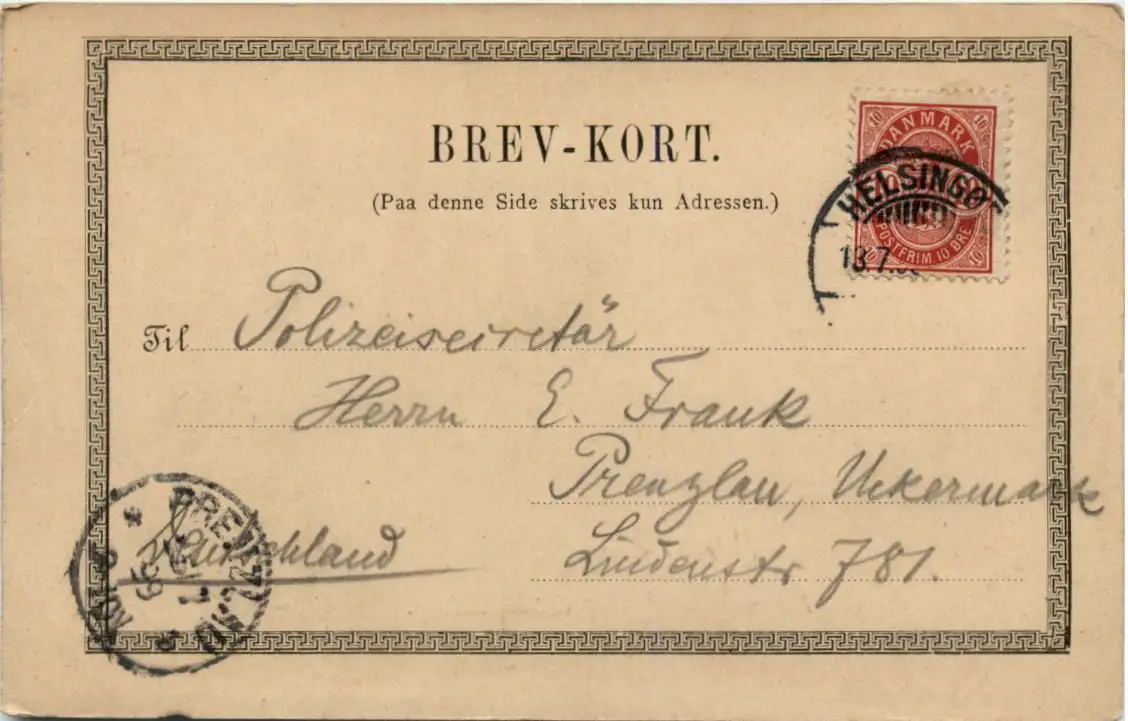 BREV-KORT.
(Paa denne Side skrives kun Adressen.)
10 DANMARK 10
POSTFRIM. 10 ØRE
10 10
HELSINGØ
Til Polizeisecretär
Herrn E. Frank
Prenzlau, Uckermark
Lindenstr 781.
Deutschland
PRENZLAU